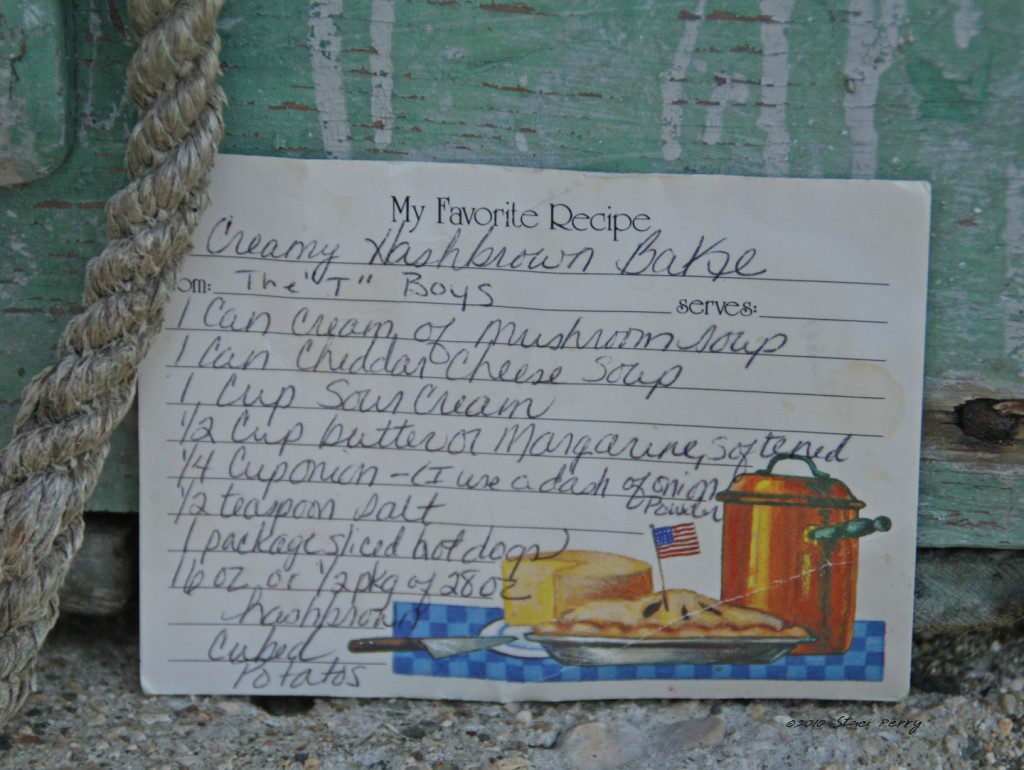 My Favorite Recipe
Creamy Hashbrown Bake
om: The "T" Boys serves:
1 Can Cream of Mushroom Soup
1 Can Cheddar Cheese Soup
1 Cup Sour Cream
1/2 Cup butter or Margarine, Softened
1/4 Cup onion - (I use a dash of onion Powder)
1/2 teaspoon Salt
1 package sliced hotdogs
16 oz or 1/2 pkg of 28 oz
hashbrown
Cubed
Potatos
©2010 Staci Perry